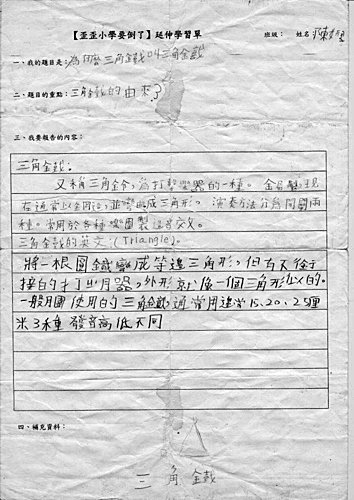 【歪歪小學要倒了】延伸學習單
班級： 姓名：陳
一、我的題目是：為什麼三角鐵叫三角鐵
二、題目的重點：三角鐵的由來？
三、我要報告的內容：
三角鐵：
又稱三角鈴，為打擊樂器的一種。金
在通常以金固這，並彎成三角形。演奏方法分為開閉兩
種。常用於各種樂團製造音效。
三角鐵的英文（Triangle）。
將一根圓鐵彎成等邊三角形，但有不銜
接的打出月器，外形就像一個三角形似的。
一般用圖使用的三角鐵通常用邊常15、20、25厘
米3種 發音高低不同
四、補充資料：
三角鐵